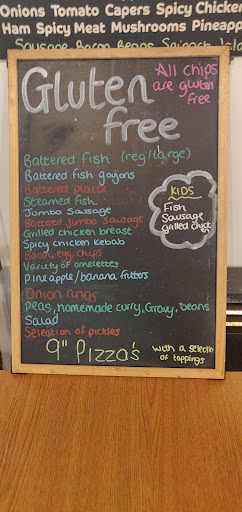 Onions Tomato Capers Spicy Chicken
Ham Spicy Meat Mushrooms Pineapp
Sausage Bacon Beans Spinach
Gluten
free
All chips
are gluten
free
Battered fish (reg/large)
Battered fish goujons
Battered plaice
Steamed fish
Jumbo Sausage
Battered jumbo sausage
Grilled chicken breast
Spicy chicken kebab
Bacon, egg, chips
Variety of omelettes
Pineapple/banana fritters
Onion rings
Peas, homemade curry, Gravy, beans
Salad
Selection of pickles
KIDS
Fish
Sausage
grilled chick
9" Pizza's
with a selectio
of toppings